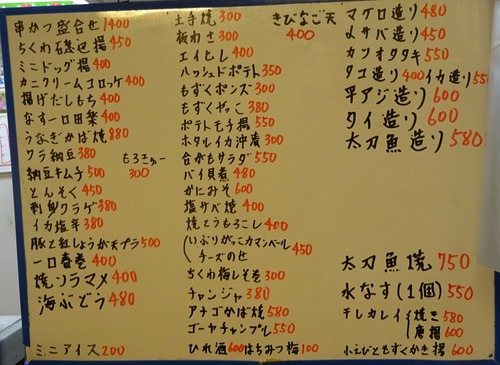 串かつ盛合せ 1400
ちくわ石磯辺揚 450
ミニドッグ揚 400
カニクリームコロッケ 400
揚げだしもち 400
なす一口田楽 400
うなぎかば焼 880
ワラ納豆 380
もろきゅー 300
納豆キムチ 500
とんそく 450
刺身クラゲ 380
イカ塩辛 380
豚と紅しょうが天プラ 500
一口春巻 400
焼ソラマメ 400
海ぶどう 480
ミニアイス 200
土手焼 300
板わさ 300
エイヒレ 400
ハッシュドポテト 350
もずくポンズ 300
もずくやっこ 380
ポテトモチ揚 550
ホタルイカ沖漬 300
合がもサラダ 550
バイ貝煮 480
かにみそ 600
塩サバ焼 400
焼とうもろこし 400
いぶりがっこカマンベールチーズのせ 450
ちくわ梅しそ巻 300
チャンジャ 380
アナゴかば焼 580
ゴーヤチャンプル 550
ひれ酒 600 はちみつ梅 100
きびなご天 400
マグロ造り 480
〆サバ造り 450
カツオタタキ 550
タコ造り 400 イカ造り 550
平アジ造り 600
タイ造り 600
太刀魚造り 580
太刀魚焼 750
水なす(1個) 550
干しカレイ 焼き 580
唐揚 600
小えびともずくかき揚 600